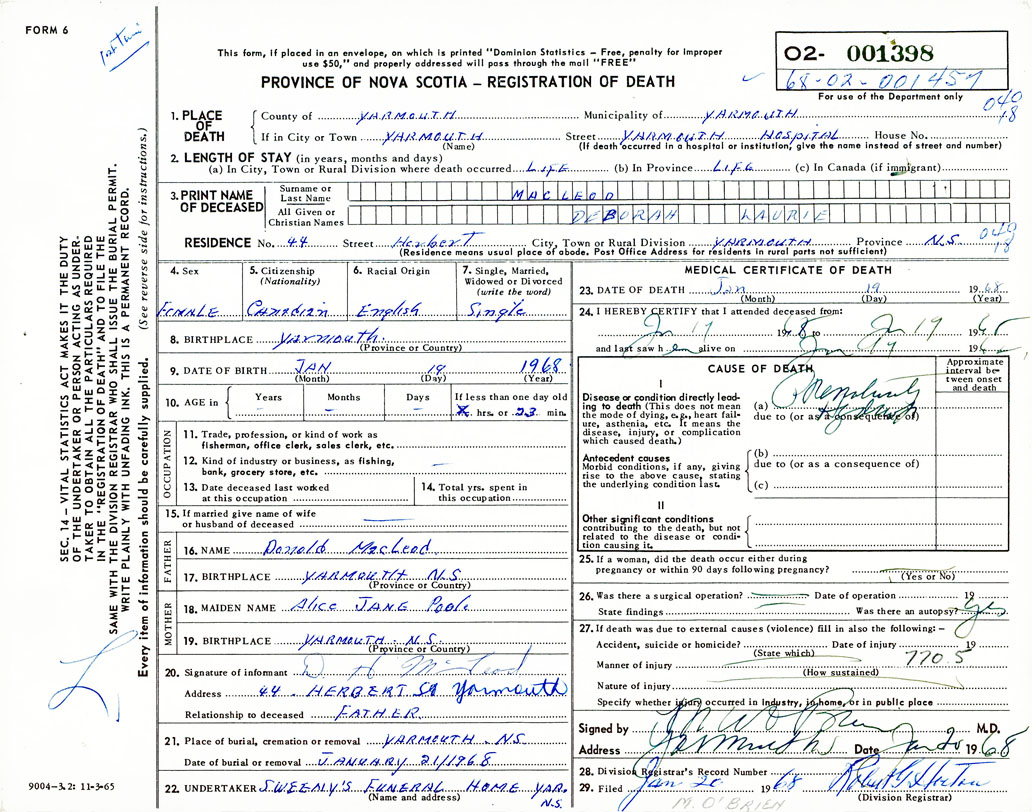 FORM 6
This form, if placed in an envelope, on which is printed "Dominion Statistics – Free, penalty for improper
use $50," and properly addressed will pass through the mail "FREE"
PROVINCE OF NOVA SCOTIA – REGISTRATION OF DEATH
02- 001398
68-02-001457
For use of the Department only
040
18
1. PLACE OF DEATH
County of YARMOUTH Municipality of YARMOUTH
If in City or Town YARMOUTH Street YARMOUTH HOSPITAL House No.
(Name) (If death occurred in a hospital or institution, give the name instead of street and number)
2. LENGTH OF STAY (in years, months and days)
(a) In City, Town or Rural Division where death occurred LIFE (b) In Province LIFE (c) In Canada (if immigrant)
3. PRINT NAME OF DECEASED
Surname or Last Name MACLEOD
All Given or Christian Names DEBORAH LAURIE
RESIDENCE No. 44 Street Herbert City, Town or Rural Division YARMOUTH Province N.S.
040
18
(Residence means usual place of abode. Post Office Address for residents in rural parts not sufficient)
4. Sex
FEMALE
5. Citizenship (Nationality)
Canadian
6. Racial Origin
English
7. Single, Married, Widowed or Divorced (write the word)
Single
8. BIRTHPLACE Yarmouth
(Province or Country)
9. DATE OF BIRTH JAN 19 1968
(Month) (Day) (Year)
10. AGE in Years Months Days If less than one day
hrs. or 23 min.
OCCUPATION
11. Trade, profession, or kind of work as fisherman, office clerk, sales clerk, etc.
12. Kind of industry or business, as fishing, bank, grocery store, etc.
13. Date deceased last worked at this occupation
14. Total yrs. spent in this occupation
15. If married give name of wife or husband of deceased
FATHER
16. NAME Donald MacLeod
17. BIRTHPLACE YARMOUTH N.S.
(Province or Country)
MOTHER
18. MAIDEN NAME Alice JANE Poole
19. BIRTHPLACE YARMOUTH - N.S.
(Province or Country)
20. Signature of informant D H McLeod
Address 44 - HERBERT St Yarmouth
Relationship to deceased FATHER
21. Place of burial, cremation or removal YARMOUTH - NS
Date of burial or removal JANUARY 21/1968
22. UNDERTAKER SWEENY'S FUNERAL HOME YAR. N.S.
(Name and address)
MEDICAL CERTIFICATE OF DEATH
23. DATE OF DEATH Jan 19 1968
(Month) (Day) (Year)
24. I HEREBY CERTIFY that I attended deceased from:
Jan 19 1968 to Jan 19 196
and last saw h er alive on Jan 19 196
CAUSE OF DEATH
Approximate interval between onset and death
I
Disease or condition directly leading to death (This does not mean the mode of dying, e.g., heart failure, asthenia, etc. It means the disease, injury, or complication which caused death.)
(a)
due to (or as a consequence of)
Antecedent causes
Morbid conditions, if any, giving rise to the above cause, stating the underlying condition last.
(b)
due to (or as a consequence of)
(c)
II
Other significant conditions
contributing to the death, but not related to the disease or condition causing it.
25. If a woman, did the death occur either during pregnancy or within 90 days following pregnancy?
(Yes or No)
26. Was there a surgical operation? Date of operation 19
State findings Was there an autopsy? yes
27. If death was due to external causes (violence) fill in also the following: –
Accident, suicide or homicide? Date of injury 19
(State which)
770.5
Manner of injury
(How sustained)
Nature of injury
Specify whether injury occurred in Industry, in home, or in public place
Signed by M.D.
Address Yarmouth Date Jan 20 1968
28. Division Registrar's Record Number
29. Filed Jan 20 1968 Robert G Horton
(Division Registrar)
M. O'BRIEN
SEC. 14 – VITAL STATISTICS ACT MAKES IT THE DUTY
OF THE UNDERTAKER OR PERSON ACTING AS UNDERTAKER TO OBTAIN ALL THE PARTICULARS REQUIRED
IN THE "REGISTRATION OF DEATH" AND TO FILE THE
SAME WITH THE DIVISION REGISTRAR WHO SHALL ISSUE THE BURIAL PERMIT.
WRITE PLAINLY WITH UNFADING INK. THIS IS A PERMANENT RECORD.
Every item of information should be carefully supplied. (See reverse side for instructions.)
9004-3.2: 11-3-65